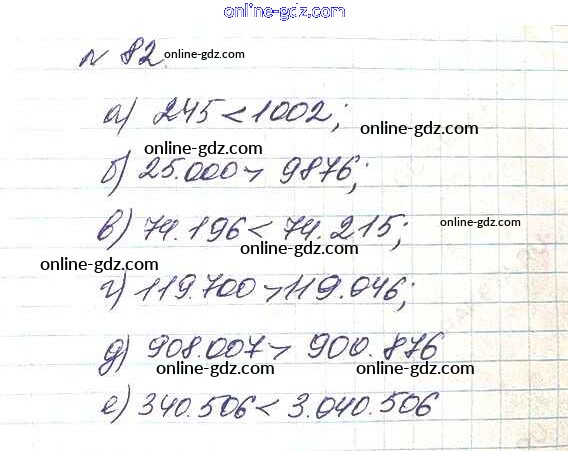 online-gdz.com
№ 82. online-gdz.com
а) 245 < 1002; online-gdz.com
online-gdz.com
б) 25.000 > 9876;
в) 74.196 < 74.215; online-gdz.com
online-gdz.com
г) 119.700 > 119.046;
online-gdz.com
д) 908.007 > 900.876
online-gdz.com
е) 340.506 < 3.040.506
online-gdz.com